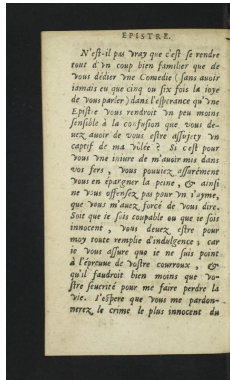 EPISTRE.
N'est-il pas vray que c'est se rendre
tout d'vn coup bien familier que de
vous dédier vne Comedie (sans auoir
iamais eu que cinq ou six fois la ioye
de vous parler) dans l'esperance qu'vne
Epistre vous rendroit vn peu moins
sensible à la confusion que vous de-
uez auoir de vous estre assujety vn
captif de ma volée ? Si c'est pour
vous vne iniure de m'auoir mis dans
vos fers, vous pouuiez assurément
vous en épargner la peine, & ainsi
ne vous offensez pas pour vn i'ayme,
que vous m'auez forcé de vous dire.
Soit que ie sois coupable ou que ie sois
innocent, vous deuez estre pour
moy toute remplie d'indulgence ; car
ie vous assure que ie ne suis point
à l'épreuue de vostre courroux, &
qu'il faudroit bien moins que vo-
stre seuerité pour me faire perdre la
vie. I'espere que vous me pardon-
nerez, le crime le plus innocent du